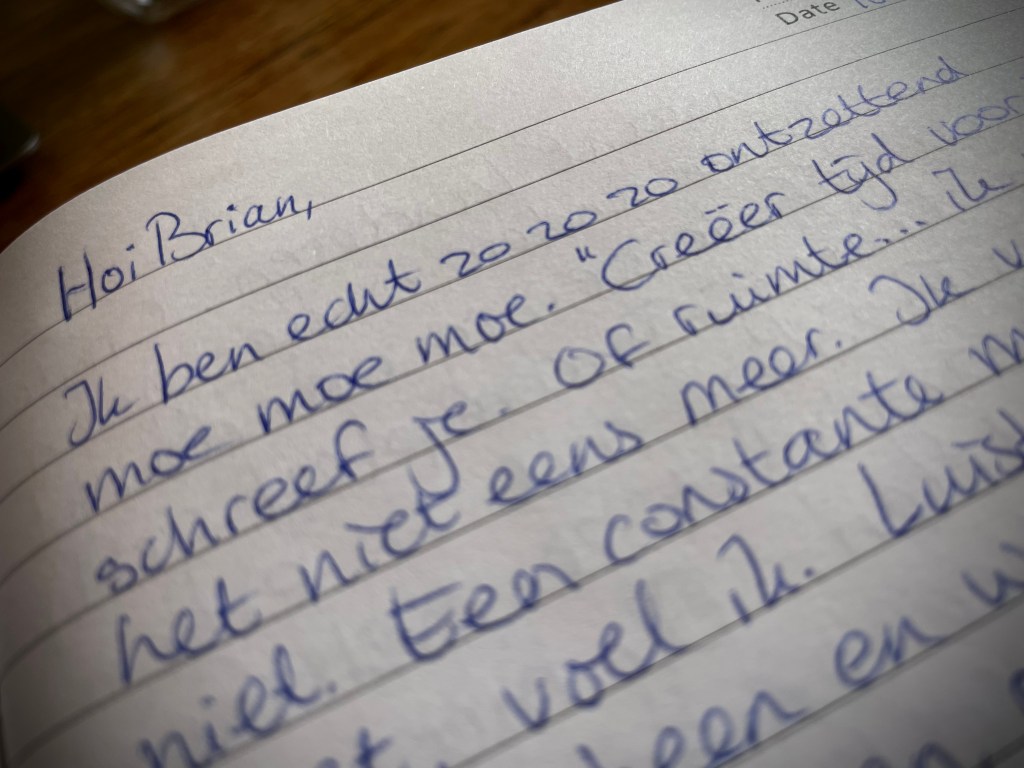 Date
Hoi Brian,
Ik ben echt zo zo zo ontzettend
moe moe moe. "Creëer tijd voor
schreef je. Of ruimte... ik
het niet eens meer. Ik
niet. Een constante
voel ik.
en